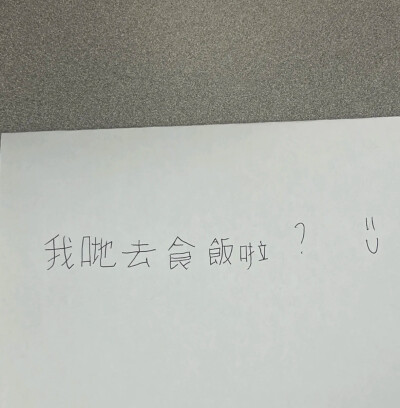 我哋去食飯啦? =U